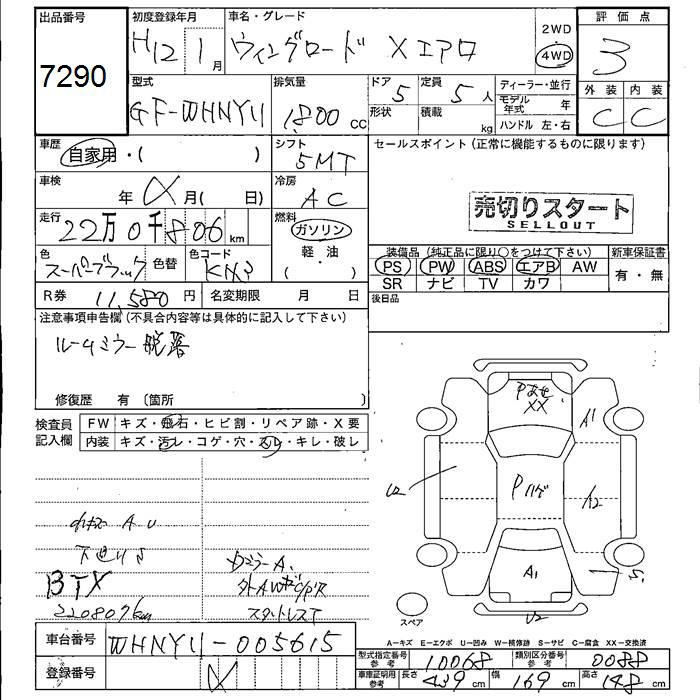 出品番号
7290
初度登録年月
H12 1月
車名・グレード
ウィングロード Xエアロ
2WD
4WD
評価点
3
型式
GF-WHNY11
排気量
1800 cc
ドア 5
形状
定員 5人
積載 kg
ディーラー・並行
モデル年式 年
ハンドル 左・右
外装 内装
C C
車歴
自家用・( )
シフト
5MT
セールスポイント(正常に機能するものに限ります)
車検
年 月( 日)
冷房
AC
売切りスタート
SELLOUT
走行
22万0千806km
燃料
ガソリン
軽・油
( )
色
スーパーブラック
色替
色コード
KH3
装備品(純正品に限り○をつけて下さい)
PS PW ABS エアB AW
SR ナビ TV カワ
新車保証書
有・無
R券 11,580円
名変期限 月 日
後日品
注意事項申告欄(不具合内容等は具体的に記入して下さい)
ルームミラー脱落
修復歴 有〔箇所 〕
検査員記入欄
FW キズ・飛石・ヒビ割・リペア跡・X要
内装 キズ・汚レ・コゲ・穴・スレ・キレ・破レ
Pあせ
XX
A1
U2
Pハゲ
A2
A1
S1
U2
スペア
小キズ A U
下廻りS
BTX
220807km
DミラーA.
スタットレスT
A―キズ E―エクボ U―凹み W―補修跡 S―サビ C―腐食 XX―交換済
車台番号 WHNY11-005615
登録番号
型式指定番号 参考 10068
類別区分番号 参考 0088
車庫証明用 参考 長さ 439 cm 幅 169 cm 高さ 148 cm